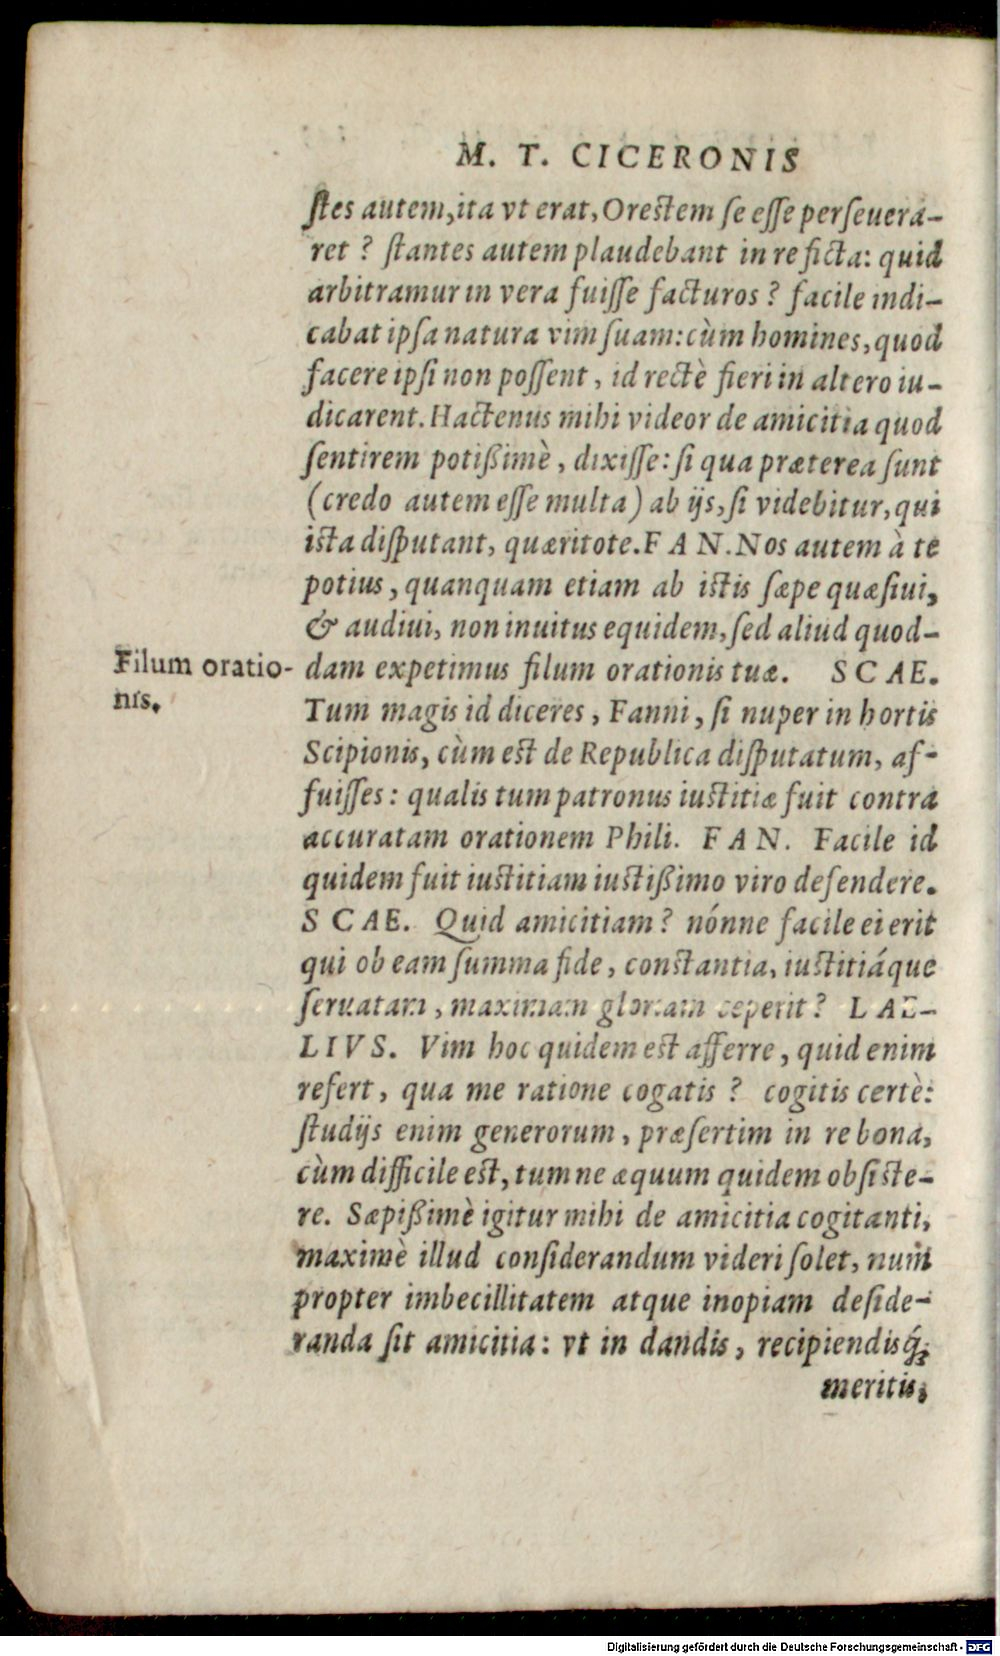 M. T. CICERONIS
ſtes autem, ita vt erat, Orestem ſe eſſe perſeuera-
ret ? ſtantes autem plaudebant in re ficta: quid
arbitramur in vera fuiſſe facturos ? facile indi-
cabat ipſa natura vim ſuam: cùm homines, quod
facere ipſi non poſſent, id rectè fieri in altero iu-
dicarent. Hactenus mihi videor de amicitia quod
ſentirem potißimè, dixiſſe: ſi qua præterea ſunt
(credo autem eſſe multa) ab ijs, ſi videbitur, qui
ista diſputant, quæritote. F A N. Nos autem à te
potius, quanquam etiam ab istis ſæpe quæſiui,
& audiui, non inuitus equidem, ſed aliud quod-
Filum oratio-
nis.
dam expetimus filum orationis tuæ. S C AE.
Tum magis id diceres, Fanni, ſi nuper in hortis
Scipionis, cùm est de Republica diſputatum, af-
fuiſſes: qualis tum patronus iustitiæ fuit contra
accuratam orationem Phili. F A N. Facile id
quidem fuit iustitiam iustißimo viro defendere.
S C AE. Quid amicitiam? nónne facile ei erit
qui ob eam ſumma fide, constantia, iustitiáque
ſeruatam, maximam gloriam ceperit? L AE-
L I V S. Vim hoc quidem est afferre, quid enim
refert, qua me ratione cogatis ? cogitis certè:
ſtudijs enim generorum, præſertim in re bona,
cùm difficile est, tum ne æquum quidem obſiste-
re. Sæpißimè igitur mihi de amicitia cogitanti,
maximè illud conſiderandum videri ſolet, num
propter imbecillitatem atque inopiam deſide-
randa ſit amicitia: vt in dandis, recipiendisq́;
meritis,
Digitalisierung gefördert durch die Deutsche Forschungsgemeinschaft - DFG